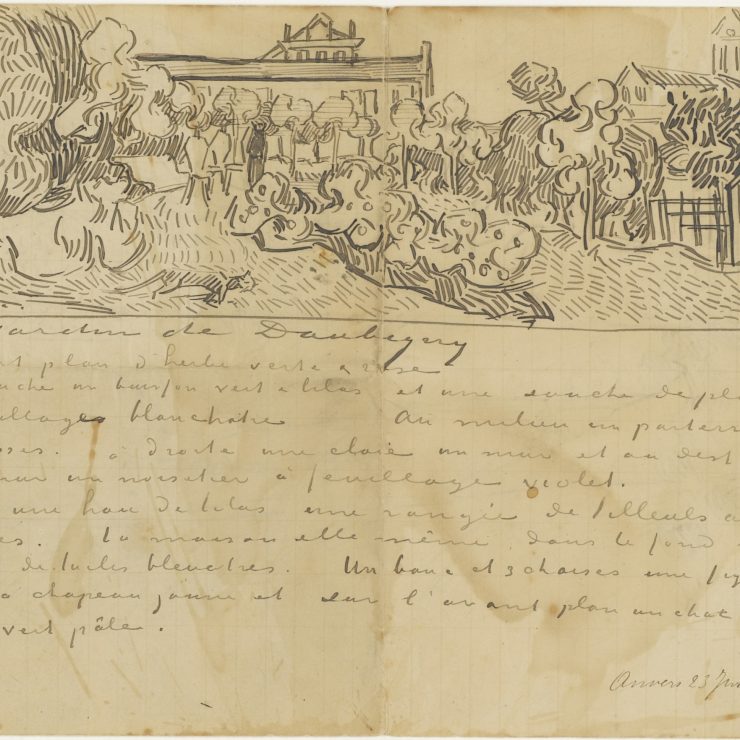 Jardin de Daubigny
plan d'herbe verte & rose
un buisson vert & lilas et une souche de pl
feuillages blanchatre Au milieu un parterre
à droite une claie un mur et au dess
un noisetier à feuillage violet.
une haie de lilas une rangée de tilleuls
La maison elle même dans le fond
de tuiles bleuatres. Un banc et 3 chaises une fig
à chapeau jaune et sur l'avant plan un chat
vert pâle.
Anvers 23